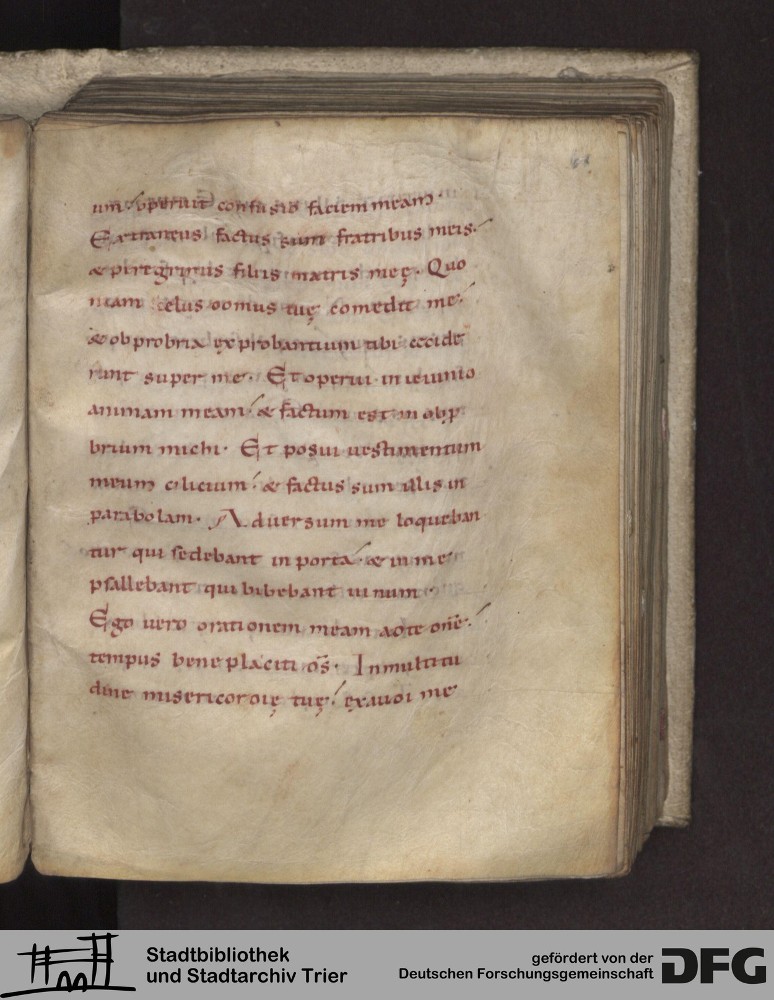 61
um operuit confusio faciem meam.
Extraneus factus sum fratribus meis.
& peregrinus filiis matris meę. Quo
niam zelus domus tuę comedit me.
& obprobria exprobantium tibi cecide
runt super me. Et operui in ieiunio
animam meam. & factum est in obp
brium michi. Et posui uestimentum
meum cilicium. & factus sum illis in
parabolam. Aduersum me loqueban
tur qui sedebant in porta. & in me
psallebant qui bibebant uinum.
Ego uero orationem meam ad te dn̄e.
tempus beneplaciti d̄s. In multitu
dine misericordię tuę. exaudi me
Stadtbibliothek
und Stadtarchiv Trier
gefördert von der
Deutschen Forschungsgemeinschaft
DFG